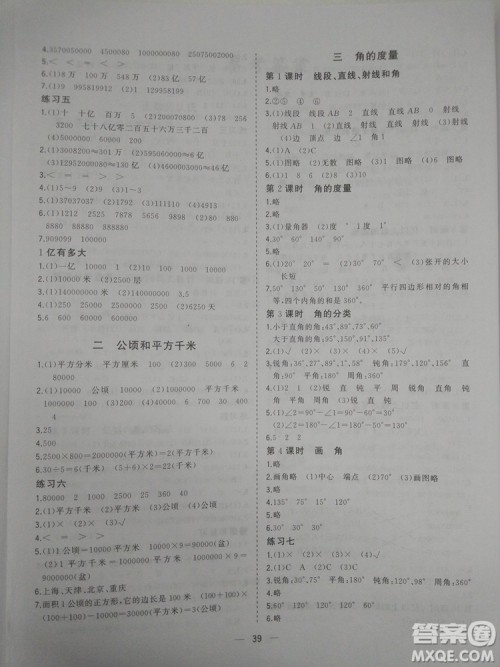 4.3570000 62000000 50900000 3070000
5.< = < =
6.(1)8万 100万 548万 (2)3亿 11亿 834亿
7.(1)9 995819912 (2)1 951819299
练习五
1.(1)十 十亿 百万 (2)5 10 7 7 (3)256
3200 七十八亿零二百五十六万三千二百
(4)100000
2.(1)9543000000 (2)5950610000 (3)2016500000
3.< = = > >
4.(1)5～9 (2)5 (3)0～4 (4)9
5.(1)37037037 (2)2
6.(1)1212 2525 7878 5656 (2)9898 1818
1111
7.909099
1亿有多大
1.(1)一亿 10000 1 (2)10 100 1000 10000
2.(1)140000000 (2)12层
3.(1)140000000 14000 3.5
4.(1)2500 2500000 (2)2500 (3)6250天
5.10000
二 公顷和平方千米
1.(1)平方分米 平方厘米 (2)100 5000 6 2
80000
2.(1)平方千米 1000000 10000 100 (2)平方千米
1000000 100 (3)400 200 9 40000
3.25
4.2500×800=2000000(平方米)=2(平方千米)
5.30÷5=6(千米) (5+6)×2=22(千米)
练习六
1.90000 2 1000 250 40 2300 10000000
2.(1)平方千米 (2)平方米 (3)公顷 (4)公顷
3.略
4.< < = > < >
5.(1)1公顷=10000平方米 10000×9=90000(盆)
(2)1平方千米=1000000平方米 1000000×9=
9000000(盆)
6.上海、天津、北京、重庆
7.面积1公顷的正方形,它的边长是100米
(100+100)×(100+200)-10000=30000(平方米)
三 角的度量
第1课时 线段、直线、射线和角
1.略
2.②⑤ ④ ⑥
3.(1)线段 线段AB 2 直线 直线AB 0 射线
射线AB 1 (2)一 无数 (3)一点 射线
(4)边 顶点 边 ∠ 角1
4.(1)A (2)C
5.(1)图略 (2)图略 (3)图略
6.(1)3 (2)6 (3)10
第2课时 角的度量
1.略
2.略
3.(1)量角器 (2)度 ° 1度 1°
4.30° 60° 140° 90°
5.略
6.(1)20° 20° = (2)60° 30° > (3)张开的大小
长短
7.120° 60° 120° 60° 平行四边形相对的角相等,
所有的角之和是360°。
第3课时 角的分类
1.小于直角的角:43°,89°,75°,37°,58°
大于直角的角:98°,150°,100°
2.(1)√ (2)√ (3)× (4)×
3.锐角:45°,89°,56° 直角:90° 钝角:179°,136°,156°,
91°,123° 平角:180° 周角:360°
4.(1)2 1 (2)锐 直 钝 平 (3)锐角 直角 钝角
平角 周角
5.(1)∠2=180°-90°-50°=40° (2)∠1=
180°-50°=130° (3)∠2=180°-90°-30°=60°
6.5 2 2
第4课时 画 角
1.略
2.画角略 (1)中心 端点 (2)70° (3)画图略
3.略
4.135° 75° 150° 105°
5.略
6.略
练习七
1.略
2.(1)× (2)× (3)× (4)√
3.锐角:30°,75° 平角:180° 钝角:120°,91° 周角:
360° 直角:90°
39
答案圈
MXQE.COM